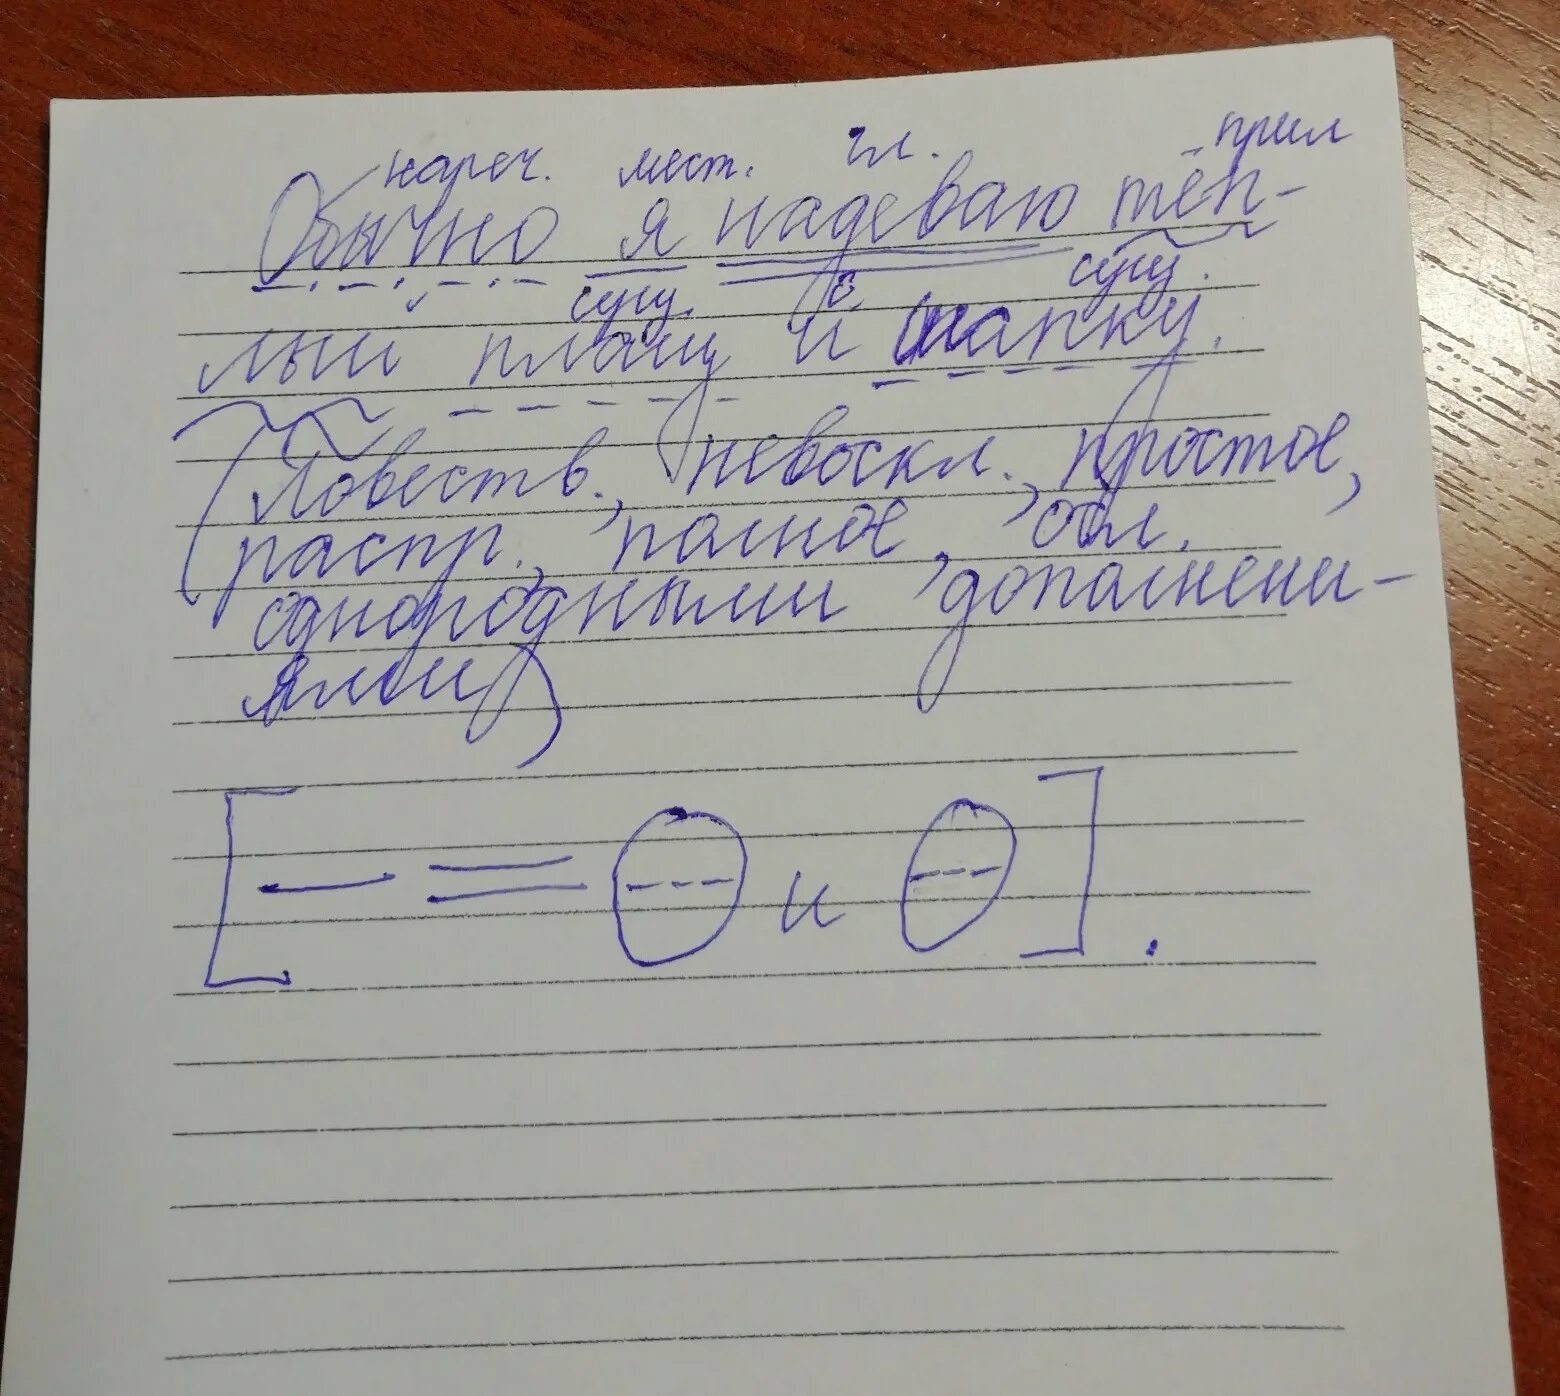 нареч. мест. гл. прил
Обычно я надеваю тёп-
сущ. с. сущ.
лый плащ и шапку.
(Повеств., невоскл., простое,
распр., полное, осл.
однородными дополнени-
ями)
[ и ].